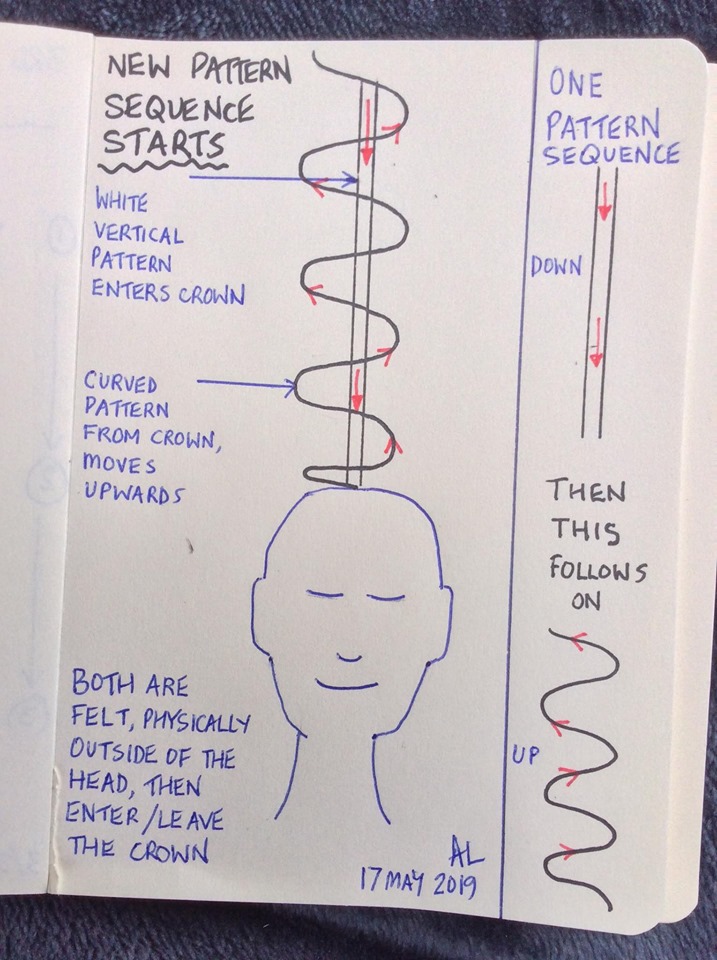 NEW PATTERN
SEQUENCE
STARTS
WHITE
VERTICAL
PATTERN
ENTERS CROWN
CURVED
PATTERN
FROM CROWN,
MOVES
UPWARDS
BOTH ARE
FELT, PHYSICALLY
OUTSIDE OF THE
HEAD, THEN
ENTER/LEAVE
THE CROWN
AL
17 MAY 2019
ONE
PATTERN
SEQUENCE
DOWN
THEN
THIS
FOLLOWS
ON
UP